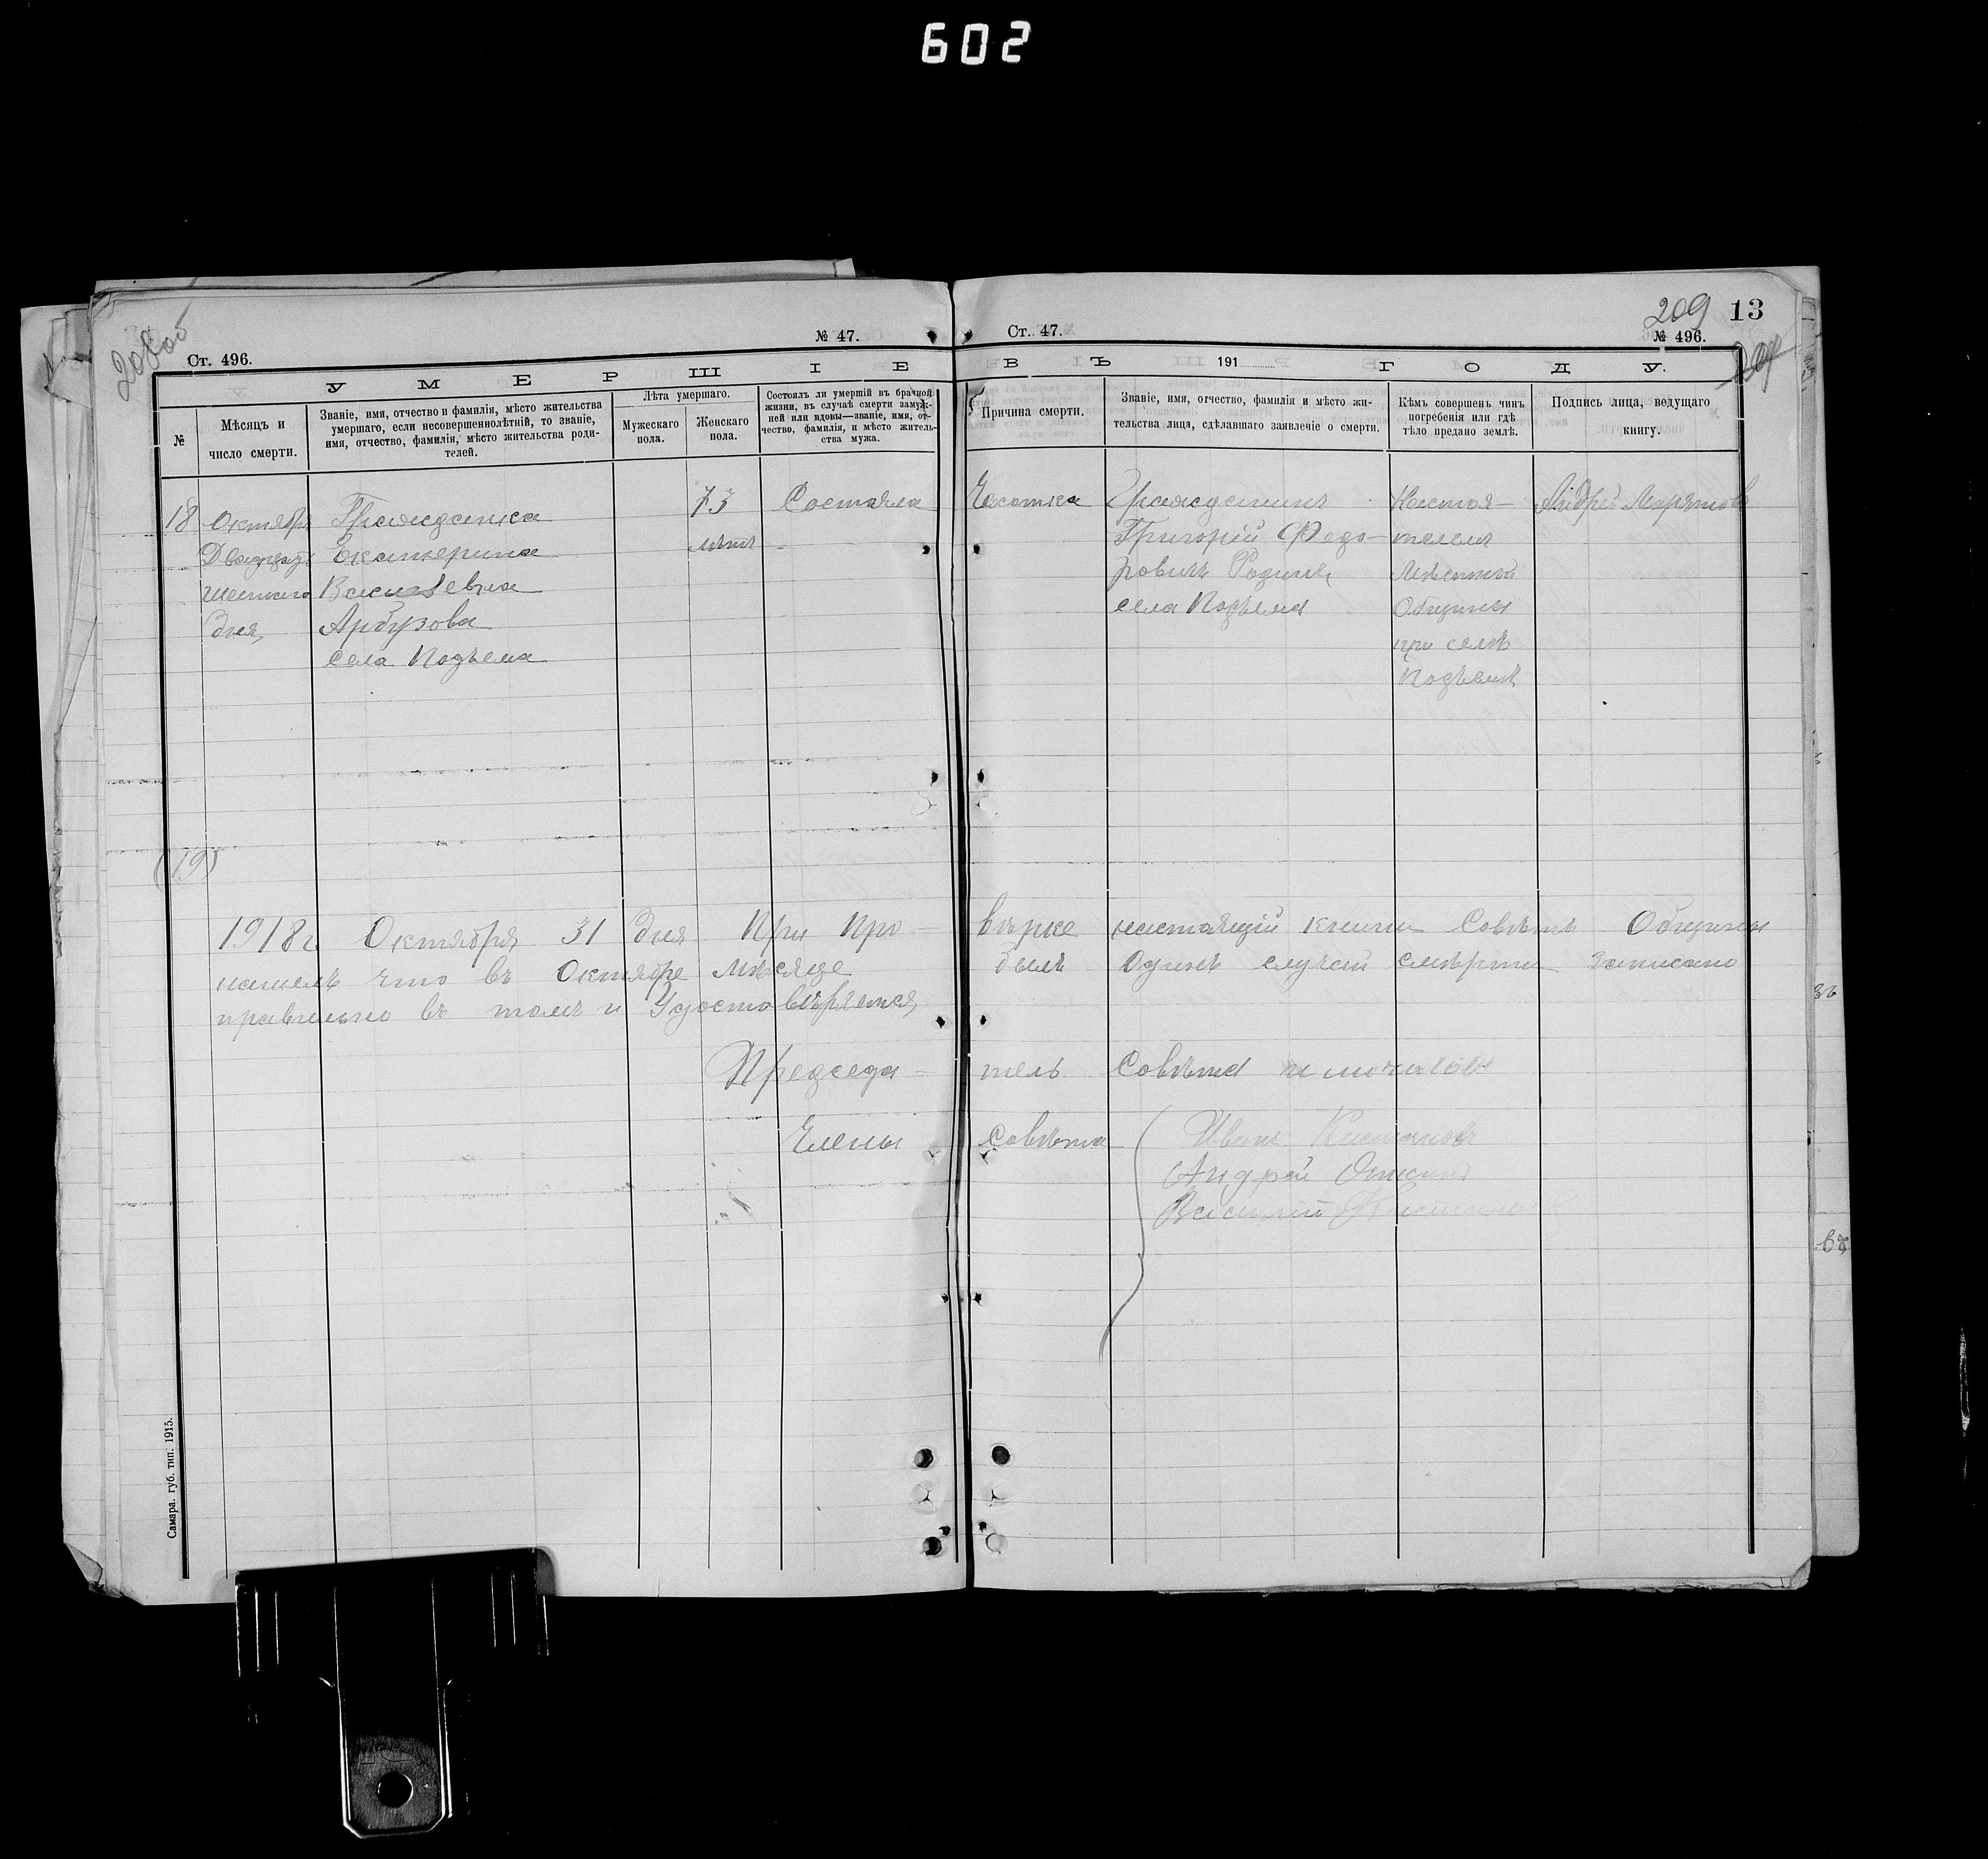 602
208 об
209 13
Ст. 496. № 47.
Ст. 47. № 496.
209
УМЕРШІЕ
ВЪ 191 ГОДУ.
№
Мѣсяцъ и
число смерти.
Званіе, имя, отчество и фамилія, мѣсто жительства
умершаго, если несовершеннолѣтній, то званіе,
имя, отчество, фамилія, мѣсто жительства роди-
телей.
Лѣта умершаго.
Мужескаго
пола.
Женскаго
пола.
Состоялъ ли умершій въ брачной
жизни, въ случаѣ смерти замуж-
ней или вдовы—званіе, имя, от-
чество, фамилія, и мѣсто житель-
ства мужа.
Причина смерти.
Званіе, имя, отчество, фамилія и мѣсто жи-
тельства лица, сдѣлавшаго заявленіе о смерти.
Кѣмъ совершенъ чинъ
погребенія или гдѣ
тѣло предано землѣ.
Подпись лица, ведущаго
книгу.
18
Октября
Двадцать
шестаго
дня,
Гражданка
Екатерина
Васильевна
Арбузова
села Подъема
73
лѣтъ
Состояла
Чахотка
Гражданинъ
Григорій Федо-
ровичъ Родинъ
села Подъема
Настоя-
телемъ
Мѣстной
Общины
при селѣ
Подъемѣ
Андрей
(19)
1918 г. Октября 31 дня При про-
вѣрке настоящій книги Совѣтъ Общины
нашелъ что въ Октябре мѣсяце
былъ Одинъ случай смѣрти записано
правильно въ томъ и Удостовѣряется
Председа-
тель Совѣта
Члены
Совѣта
Иванъ
Андрей
Василий
Самара. губ. тип. 1915.